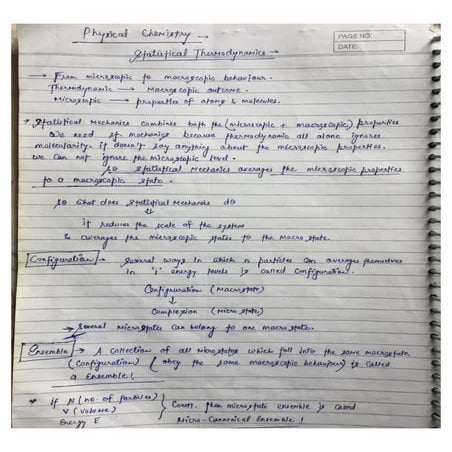 Physical Chemistry →
PAGE NO.
DATE:
Statistical Thermodynamics →
→ From microscopic to macroscopic behaviour.
Thermodynamic → Macroscopic outcome.
Microscopic → properties of atoms & molecules.
→ Statistical Mechanics combines both the (microscopic + macroscopic) properties
We need st mechanics because thermodynamic all alone ignores
molecularity. it doesn't say anything about the microscopic properties.
We can not ignore the microscopic level.
so statistical Mechanics averages the microscopic properties
to a macroscopic state.
so what does statistical Mechanics do
⇓
it reduces the scale of the system
& averages the microscopic states to the macro state.
Configuration → Several ways in which n particles can averages themselves
in 'j' energy levels is called configuration.
Configuration (Macrostate)
↓
Complexion (Micro state)
→ Several Microstates can belong to one macro state.
Ensemble → A collection of all Microstates which fall into the same macrostate
(Configuration) (obey the same macroscopic behaviour) is called
a Ensemble!
→ if N (no. of particles)
V (Volume)
Energy E
} Const. then microstate ensemble is called
Micro-Canonical Ensemble!